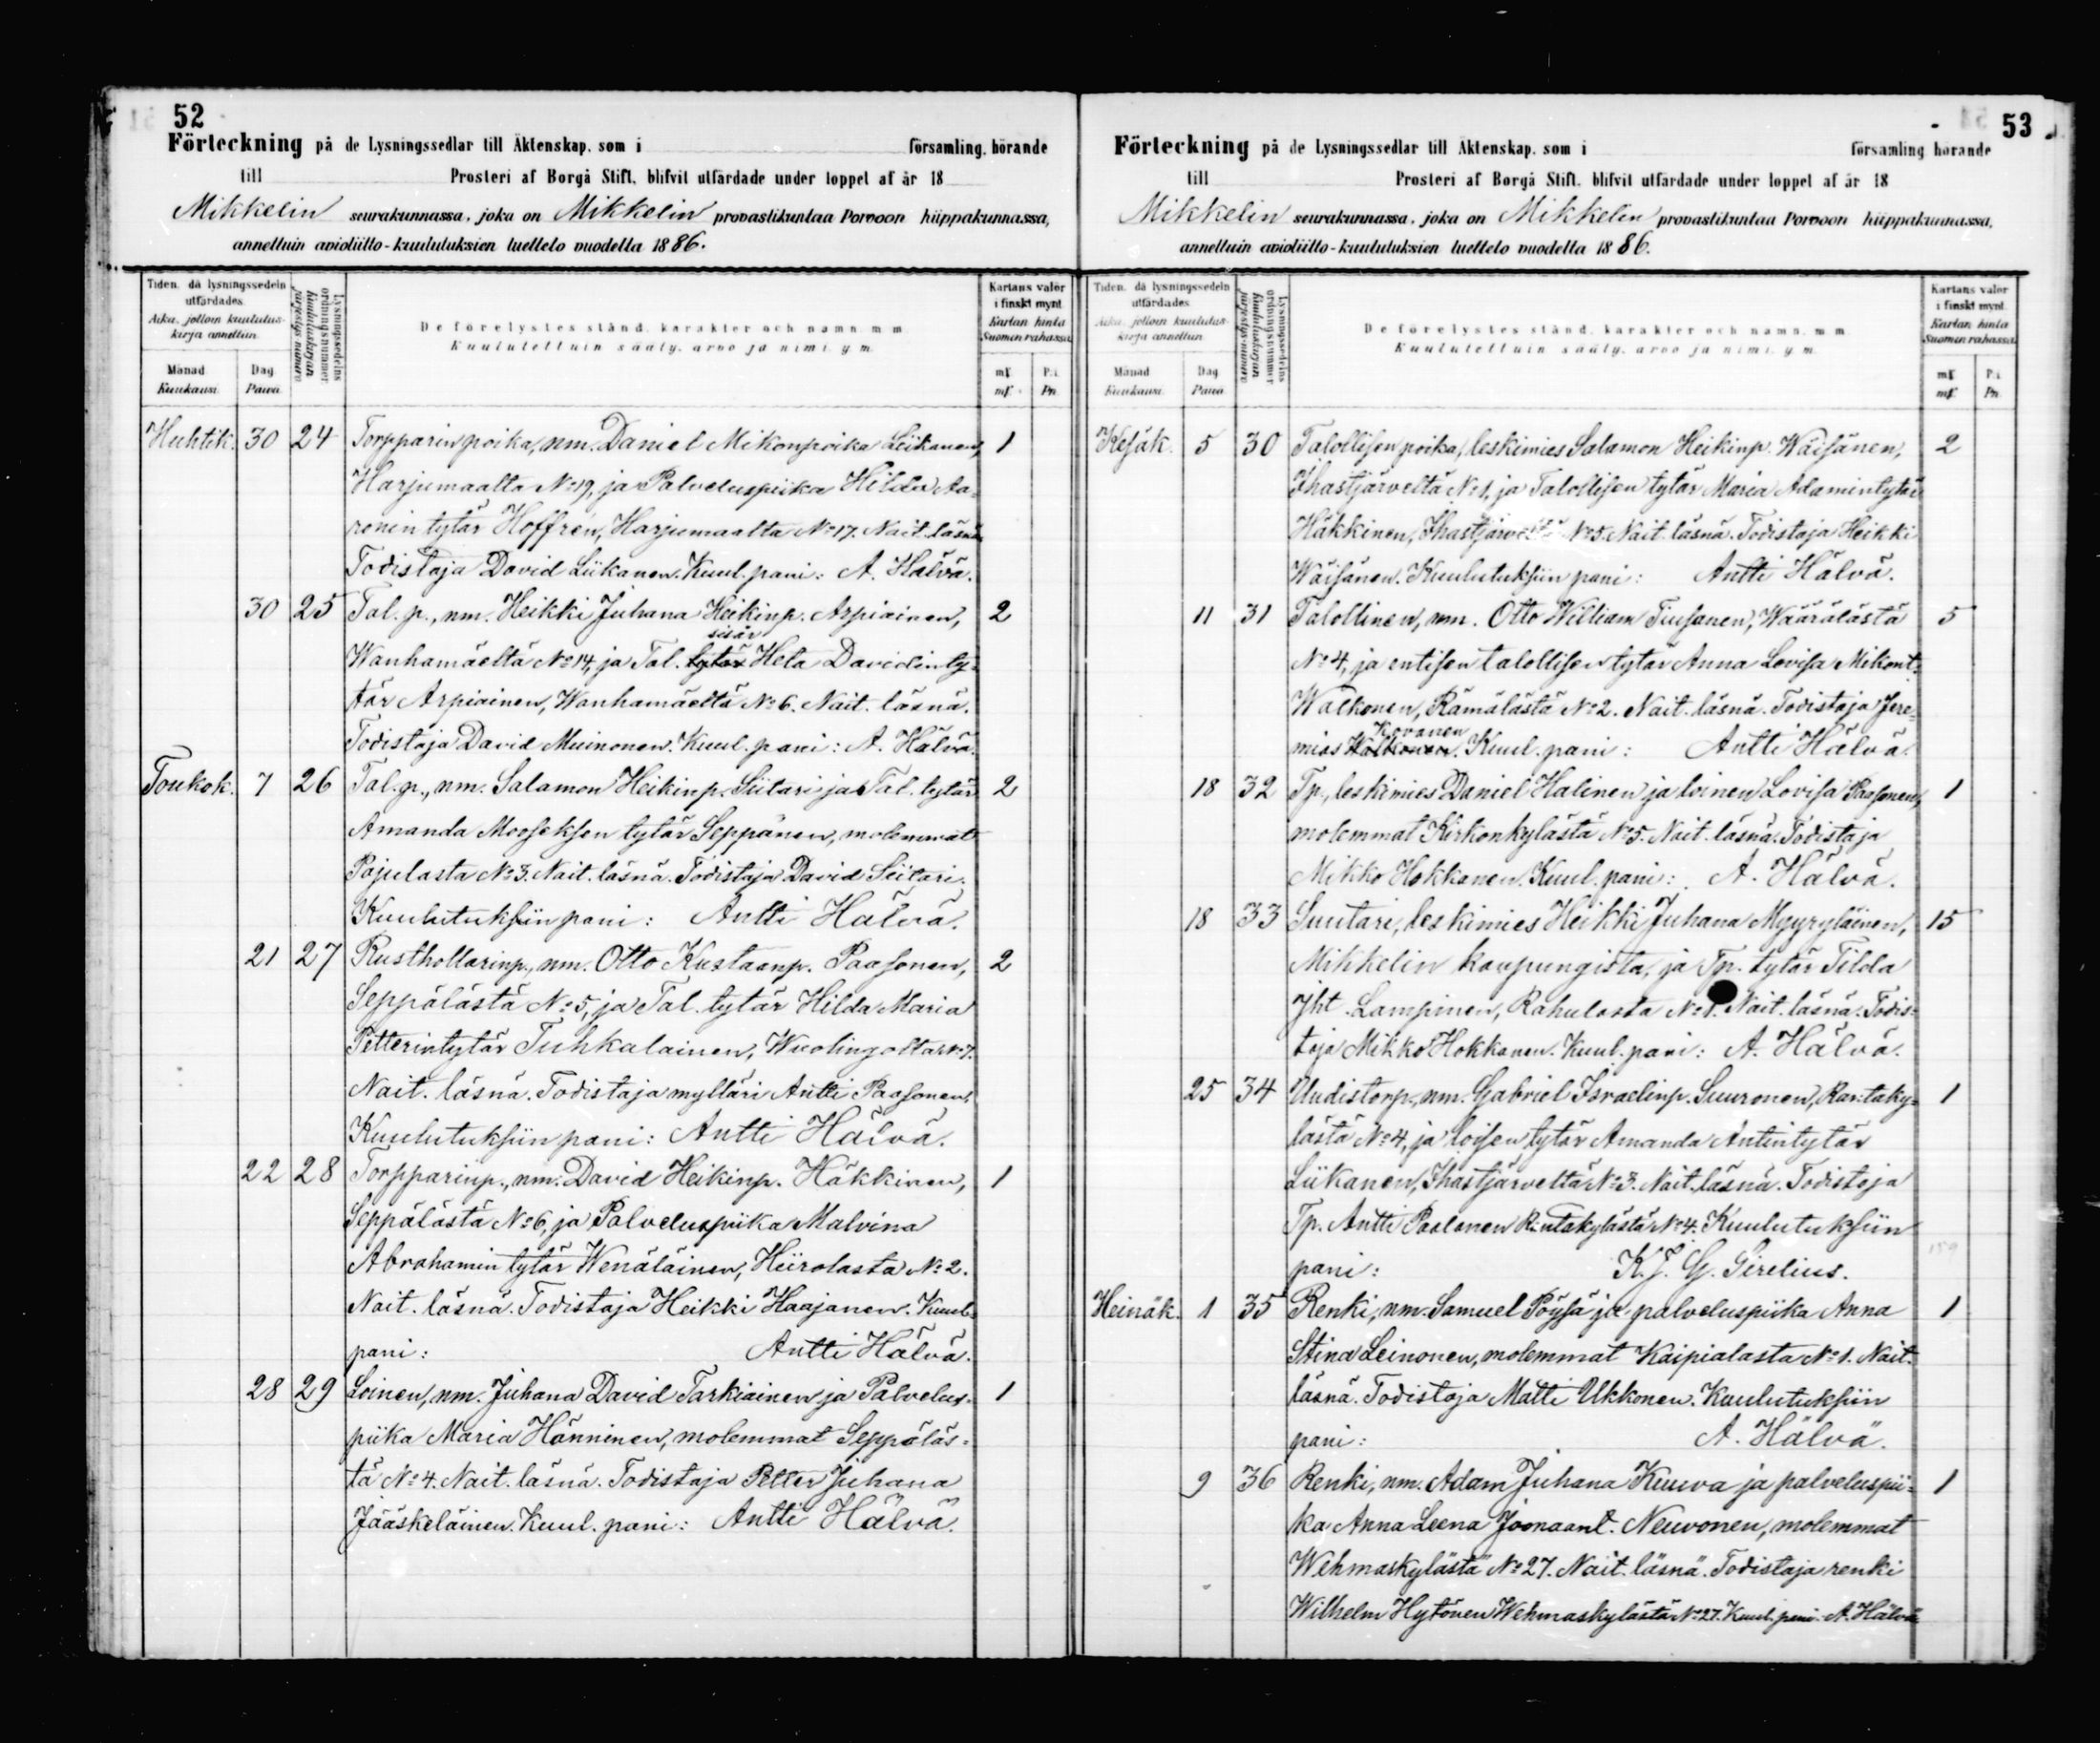 52
Förteckning på de Lysningssedlar till Äktenskap, som i församling, hörande
till Prosteri af Borgå Stift, blifvit utfärdade under loppet af år 18
Mikkelin seurakunnassa, joka on Mikkelin provastikuntaa Porvoon hiippakunnassa,
annettuin avioliitto-kuulutuksien luettelo vuodelta 1886.
Tiden, då lysningssedeln utfärdades.
Aika, jolloin kuulutuskirja annettiin.
Månad Kuukausi.
Dag Päivä.
Lysningssedelns ordningsnummer
Kuulutuskirjan järjestys-numero
De förelystes stånd, karakter och namn m. m.
Kuulutettuin sääty, arvo ja nimi, y. m.
Kartans valör i finskt mynt.
Kartan hinta Suomen rahassa.
mf. mf. P:i. Pn.
Huhtik. 30 24 Torpparin poika, nm. Daniel Mikonpoika Liikanen, 1
Harjumaalta No 19, ja Palveluspiika Hilda Aa-
ronin tytär Hoffrén, Harjumaalta No 17. Nait. läsnä
Todistaja David Liikanen. Kuul. pani: A. Hälvä.
30 25 Tal. p., nm. Heikki Juhana Heikinp. Arpiainen, 2
sisär
Wanhamäeltä No 14, ja Tal. tytär Heta Davidinty-
tär Arpiainen, Wanhamäeltä No 6. Nait. läsnä.
Todistaja David Muinonen. Kuul. pani: A. Hälvä.
Toukok. 7 26 Tal. p., nm. Salamon Heikinp. Siitari ja Tal. tytär 2
Amanda Mooseksen tytär Seppänen, molemmat
Pajulasta No 3. Nait. läsnä. Todistaja David Siitari.
Kuulutuksiin pani: Antti Hälvä.
21 27 Rusthollarinp., nm. Otto Kustaanp. Paasonen, 2
Seppälästä No 5, ja Tal. tytär Hilda Maria
Petterintytär Tuhkalainen, No 7.
Nait. läsnä. Todistaja mylläri Antti Paasonen.
Kuulutuksiin pani: Antti Hälvä.
22 28 Torpparinp., nm. David Heikinp. Häkkinen, 1
Seppälästä No 6, ja Palveluspiika Malvina
Abrahamin tytär Wenäläinen, Hiirolasta No 2.
Nait. läsnä. Todistaja Heikki Haajanen. Kuul.
pani: Antti Hälvä.
28 29 Loinen, nm. Juhana David Tarkiainen ja Palvelus- 1
piika Maria Hänninen, molemmat Seppäläs-
tä No 4. Nait. läsnä. Todistaja Petter Juhana
Jääskeläinen. Kuul. pani: Antti Hälvä.
53
Förteckning på de Lysningssedlar till Äktenskap, som i församling hörande
till Prosteri af Borgå Stift, blifvit utfärdade under loppet af år 18
Mikkelin seurakunnassa, joka on Mikkelin provastikuntaa Porvoon hiippakunnassa,
annettuin avioliitto-kuulutuksien luettelo vuodelta 1886.
Tiden, då lysningssedeln utfärdades
Aika, jolloin kuulutuskirja annettiin
Månad Kuukausi.
Dag Päivä
Lysningssedelns ordningsnummer
Kuulutuskirjan järjestys-numero
De förelystes stånd, karakter och namn m. m.
Kuulutettuin sääty, arvo ja nimi, y. m.
Kartans valör i finskt mynt.
Kartan hinta Suomen rahassa.
mf. mf. P:i. Pn.
Kesäk. 5 30 Talollisen poika, leskimies Salamon Heikinp. Wäisänen, 2
Ihastjärveltä No 1, ja Talollisen tytär Maria Adamintytär
Häkkinen, No 5. Nait. läsnä. Todistaja Heikki
Wäisänen. Kuulutuksiin pani: Antti Hälvä.
11 31 Talollinen, nm. Otto William Tiusanen, Wäärälästä 5
No 4, ja entisen talollisen tytär Anna Lovisa Mikont.
Walkonen, Rämälästä No 2. Nait. läsnä. Todistaja Jere-
Kovanen
mias Walkonen. Kuul. pani: Antti Hälvä.
18 32 Tp., leskimies Daniel Halinen ja loinen Lovisa Paasonen, 1
molemmat Kirkonkylästä No 5. Nait. läsnä. Todistaja
Mikko Hokkanen. Kuul. pani: A. Hälvä.
18 33 Suutari, leskimies Heikki Juhana Myyryläinen, 15
Mikkelin kaupungista, ja Tp. tytär Tilda
Jht. Lampinen, Rahulasta No 1. Nait. läsnä. Todis-
taja Mikko Hokkanen. Kuul. pani: A. Hälvä.
25 34 Uudistorp., nm. Gabriel Israelinp. Suuronen, Rantaky- 1
lästä No 4, ja loisen tytär Amanda Antintytär
Liikanen, Ihastjärveltä No 3. Nait. läsnä. Todistaja
Tp. Antti Paalanen Rantakylästä No 4. Kuulutuksiin
pani: K. J. G. Sirelius.
Heinäk. 1 35 Renki, nm. Samuel Pöysä ja palveluspiika Anna 1
Stina Leinonen, molemmat Kaipialasta No 1. Nait.
läsnä. Todistaja Matti Ukkonen. Kuulutuksiin
pani: A. Hälvä.
9 36 Renki, nm. Adam Juhana Kuuva ja palveluspii- 1
ka Anna Leena Joonaant. Neuvonen, molemmat
Wehmaskylästä No 27. Nait. läsnä. Todistaja renki
Wilhelm Hytönen Wehmaskylästä No 27. Kuul. pani A. Hälvä